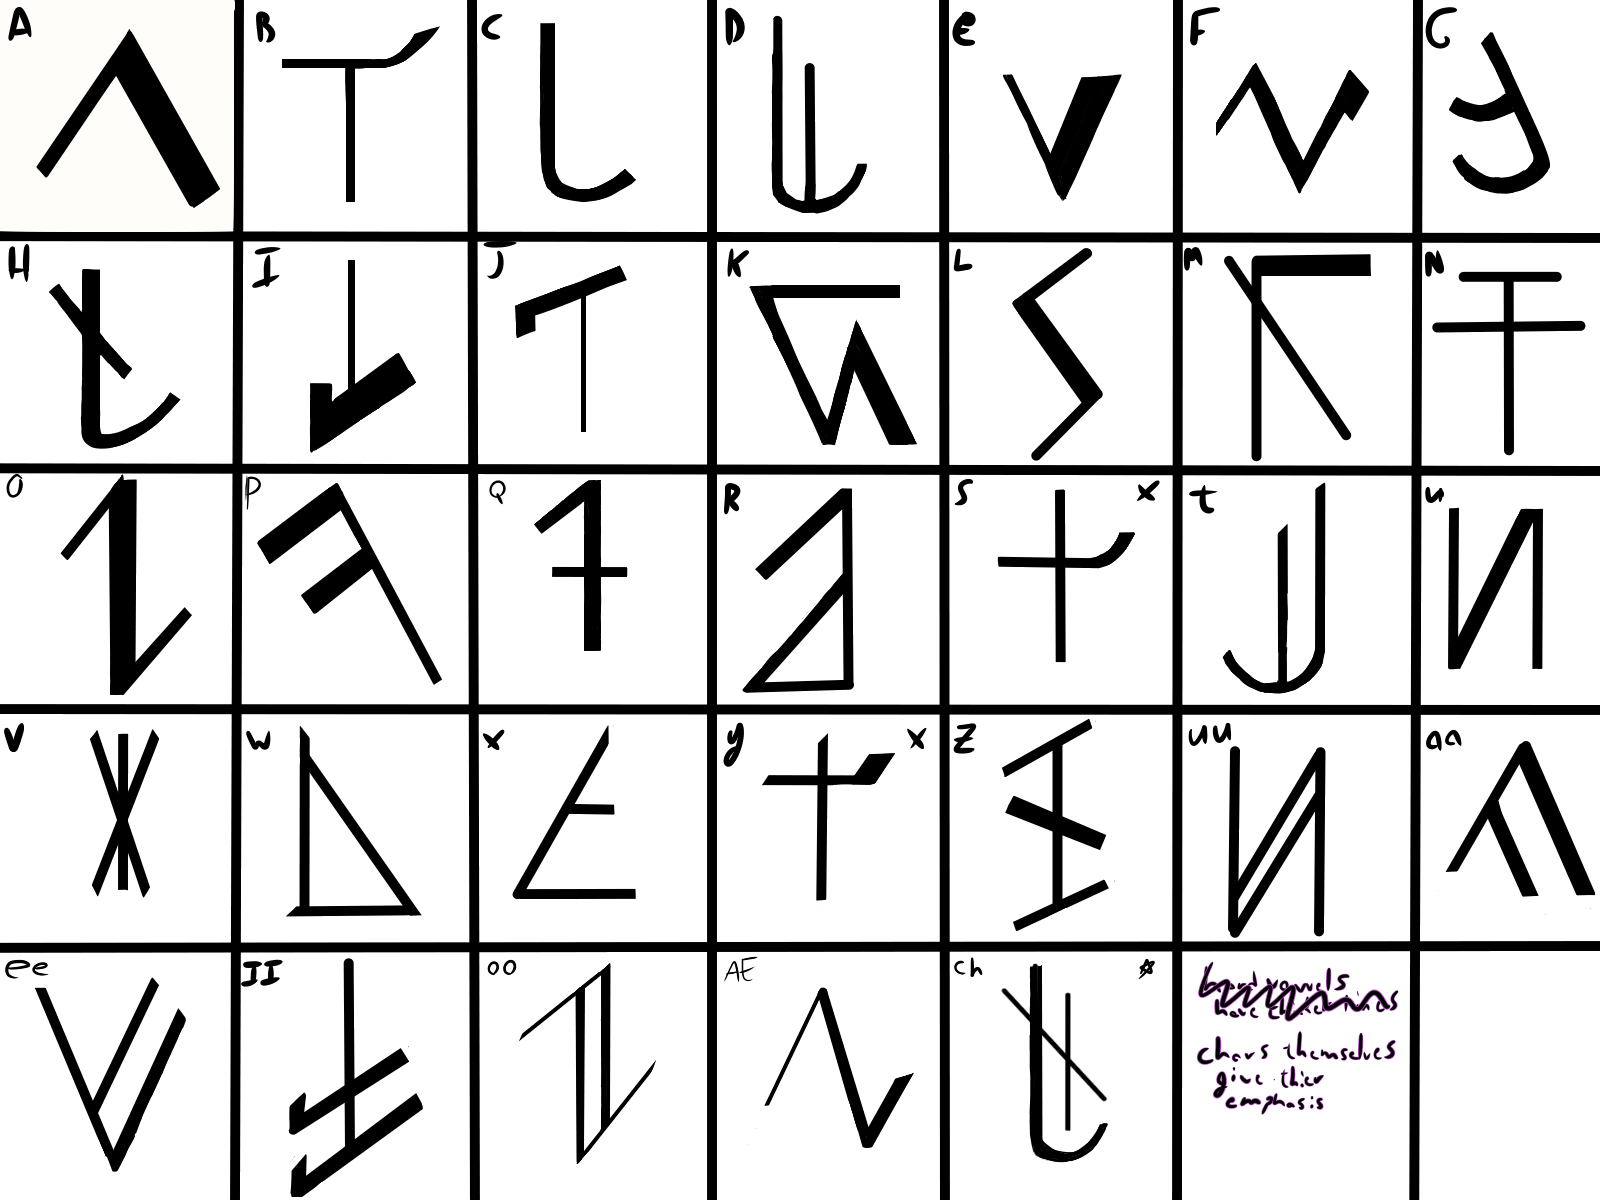 A B C D e F G
H I J K L M N
O P Q R S x t u
V w x y x Z uu aa
ee II oo AE ch
chars themselves
give thier
emphasis